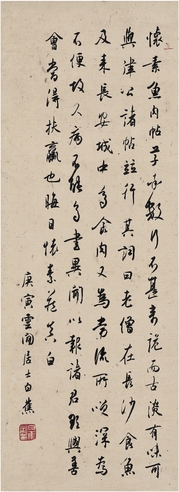 懷素魚肉帖子數行不甚奇詭而古淡有味可
與律公諸帖並行其詞曰老僧在長沙食魚
及來長安城中多食肉又為常流所笑深為
不便故久病不能多書異聞以報諸君欲興善
會當得扶羸也晦日懷素藏真白
庚寅雲間居士白蕉